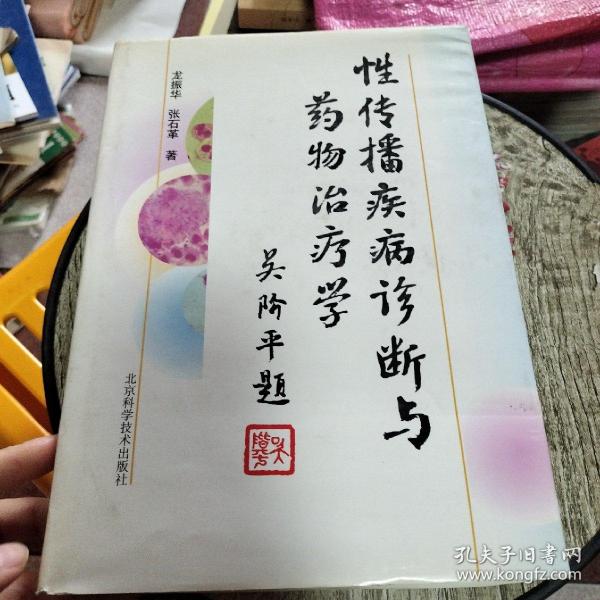 性传播疾病诊断与
药物治疗学
吴阶平题
龙振华 张石革 著
北京科学技术出版社
孔夫子旧书网
www.kongfz.com